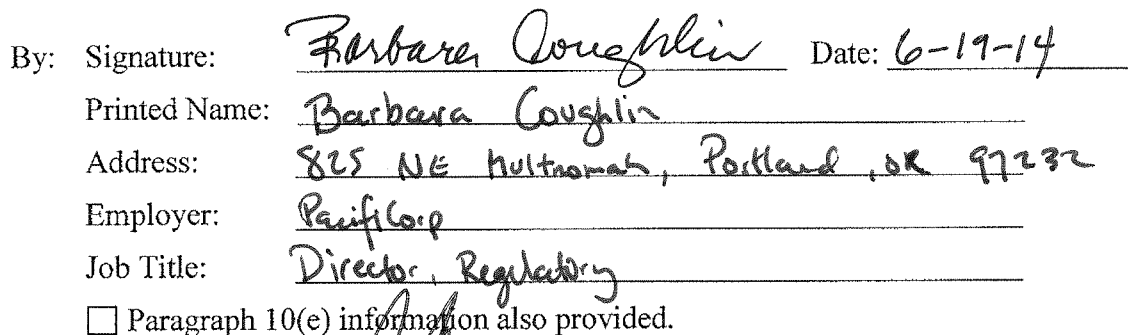 By: Signature: Barbara Coughlin Date: 6-19-14
Printed Name: Barbara Coughlin
Address: 825 NE Multnomah, Portland, OR 97232
Employer: PacifiCorp
Job Title: Director, Regulatory
☐ Paragraph 10(e) information also provided.